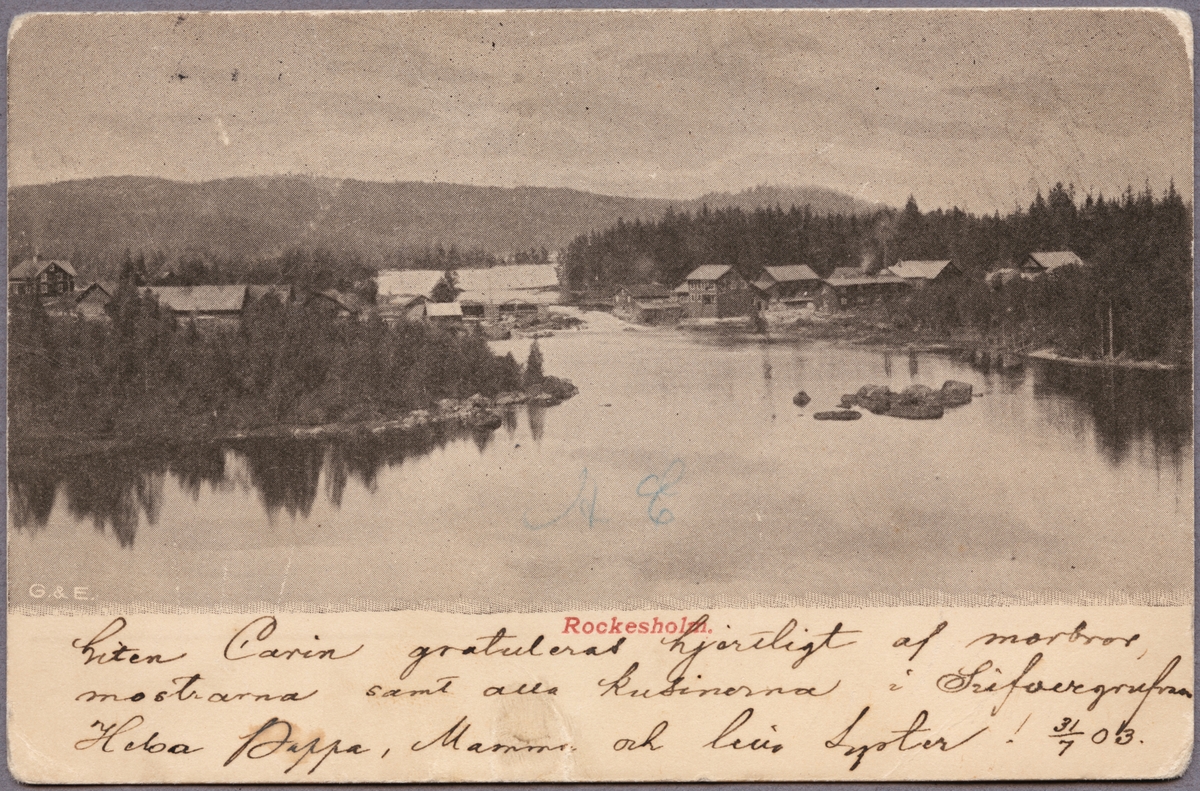 A E
G. & E.
Rockesholm.
Liten Carin gratuleras hjertligt af morbror,
mostrarna samt alla kusinerna i Silfvergrufvan
Helsa Pappa, Mamma och lilla Syster! 31/7 03.